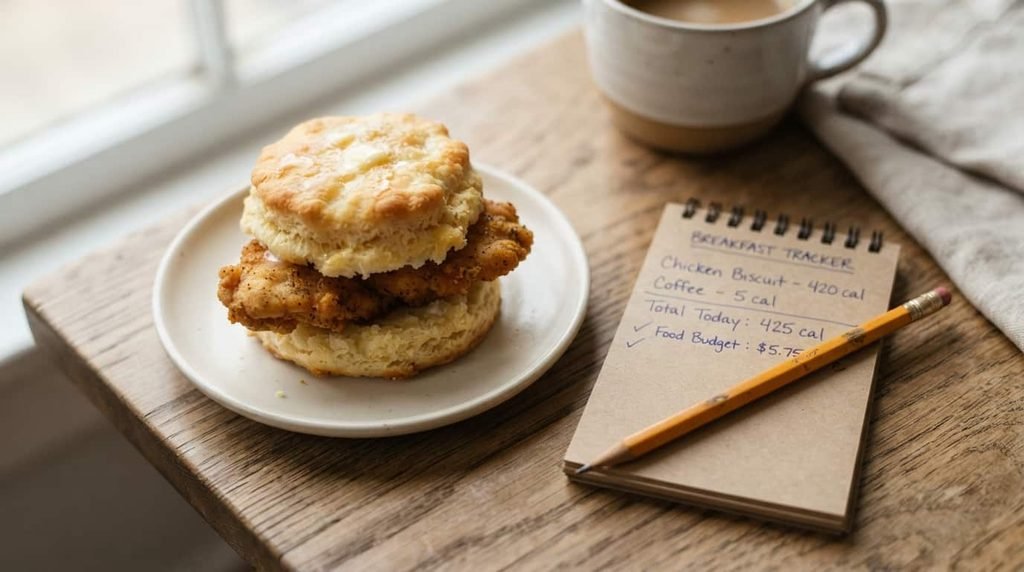 BREAKFAST TRACKER
Chicken Biscuit - 420 cal
Coffee - 5 cal
Total Today: 425 cal
✓ Food Budget: $5.75
✓